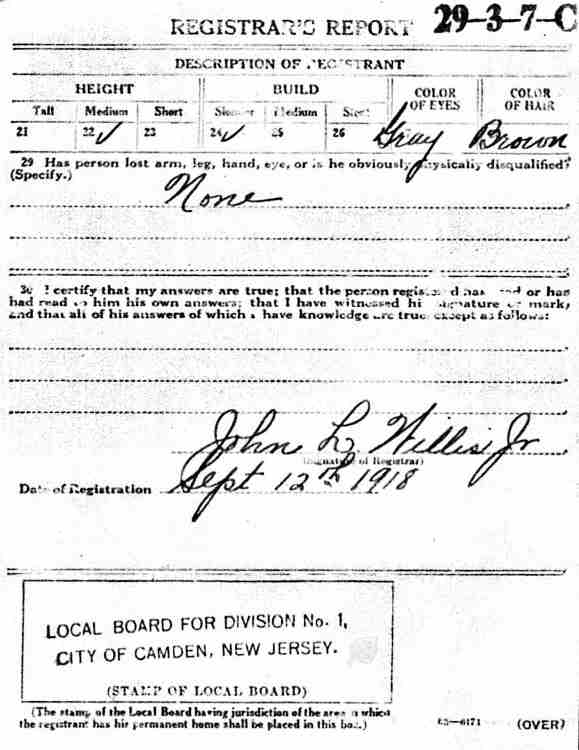 REGISTRAR'S REPORT 29-3-7-C
DESCRIPTION OF REGISTRANT
HEIGHT BUILD COLOR OF EYES COLOR OF HAIR
Tall Medium Short Slender Medium Stout
21 22 ✓ 23 24 ✓ 25 26 Gray Brown
29 Has person lost arm, leg, hand, eye, or is he obviously physically disqualified?
(Specify.)
None
30 I certify that my answers are true; that the person registered has read or has
had read to him his own answers; that I have witnessed his signature or mark,
and that all of his answers of which I have knowledge are true, except as follows:
John L. Willis Jr
(Signature of Registrar)
Date of Registration Sept 12th 1918
LOCAL BOARD FOR DIVISION No. 1,
CITY OF CAMDEN, NEW JERSEY.
(STAMP OF LOCAL BOARD)
(The stamp of the Local Board having jurisdiction of the area in which
the registrant has his permanent home shall be placed in this box.)
03—6171 (OVER)